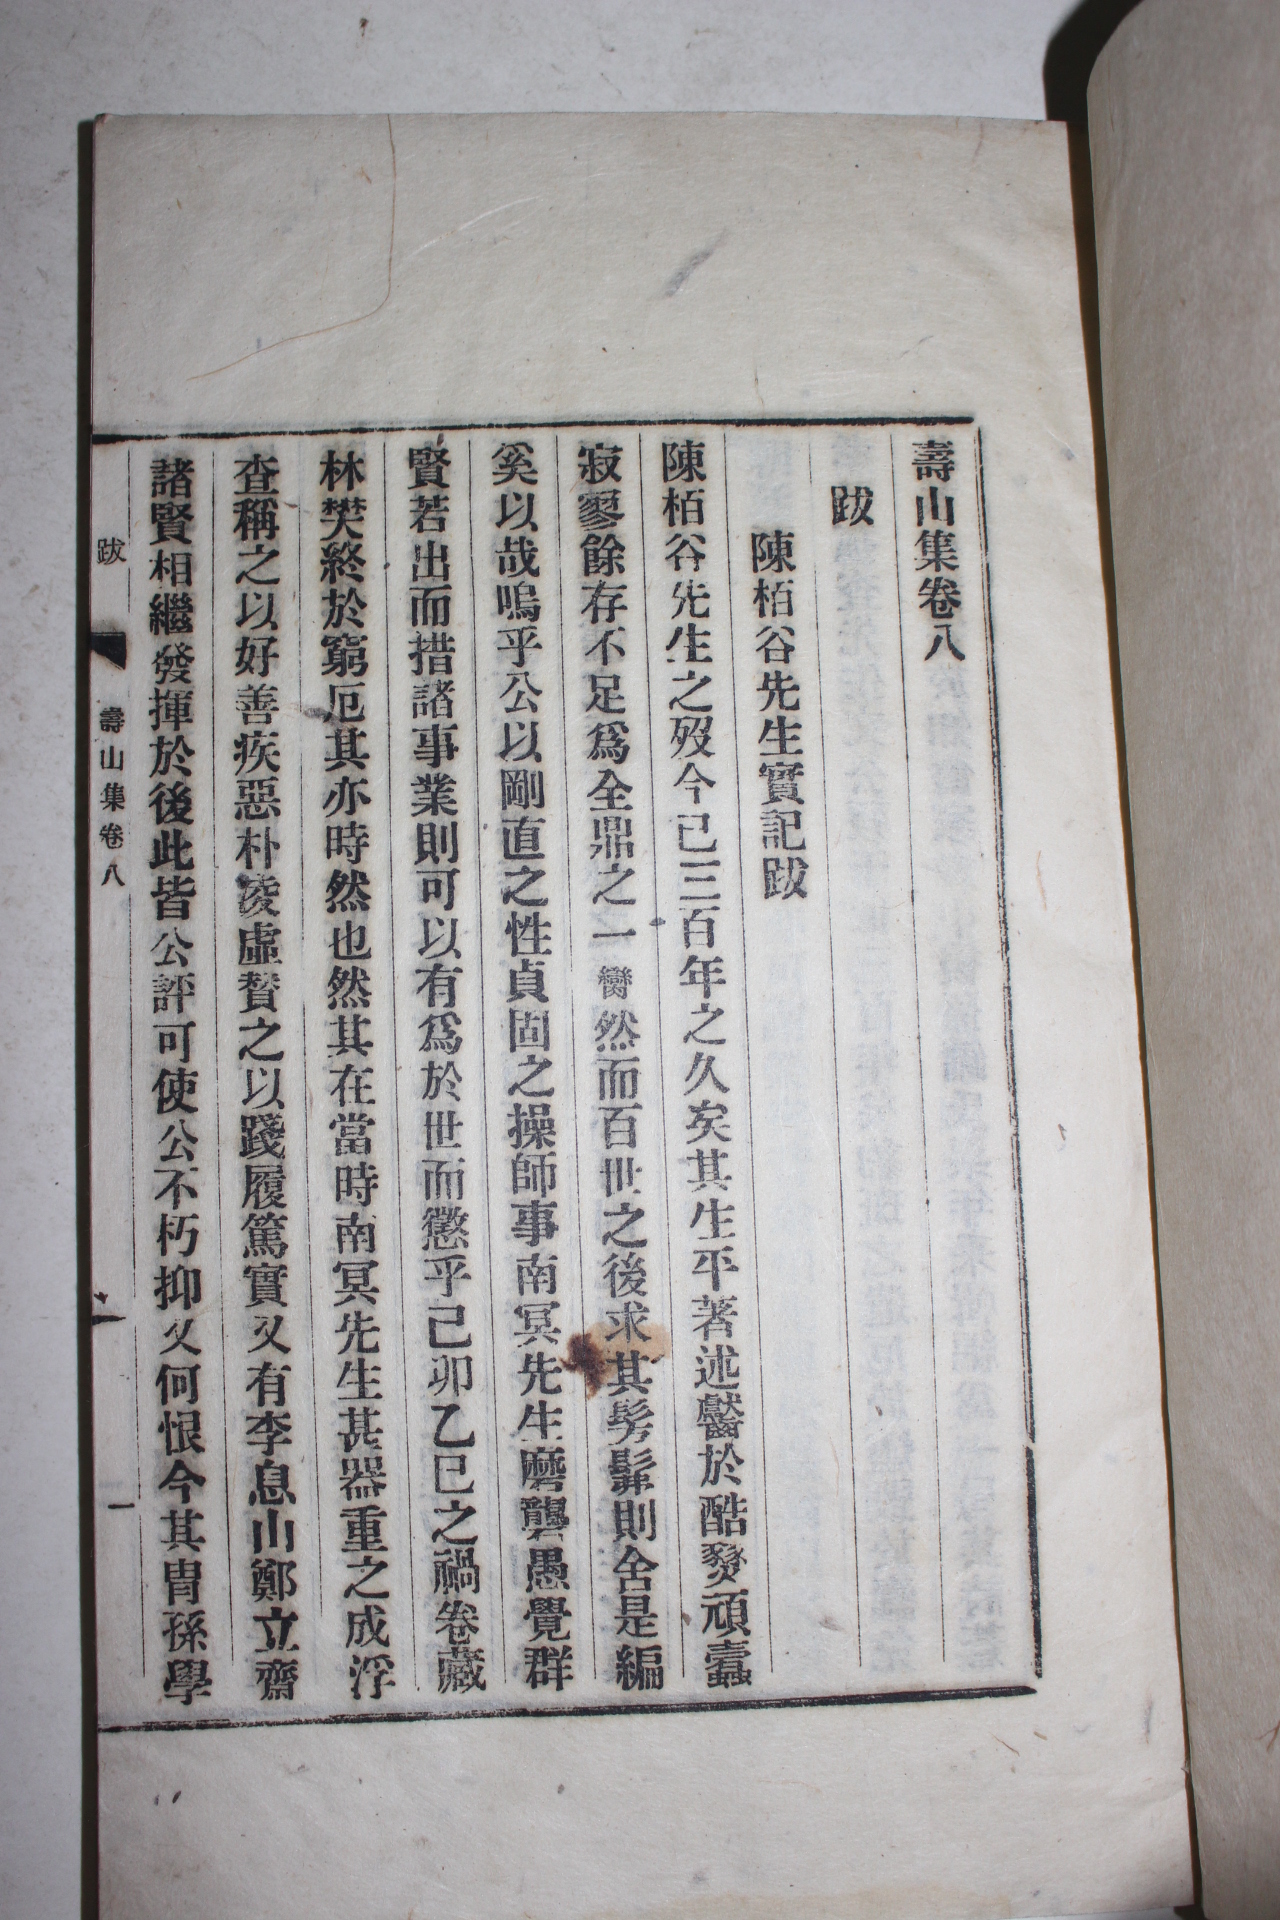 壽山集卷八
跋
陳栢谷先生實記跋
陳栢谷先生之歿今已三百年之久矣其生平著述齾於酷燹頑蠹
寂寥餘存不足爲全鼎之一臠然而百世之後求其髣髴則舍是編
奚以哉嗚乎公以剛直之性貞固之操師事南冥先生磨礱愚覺群
賢若出而措諸事業則可以有爲於世而懲乎己卯乙巳之禍卷藏
林樊終於窮厄其亦時然也然其在當時南冥先生甚器重之成浮
査稱之以好善疾惡朴凌虛贊之以踐履篤實又有李息山鄭立齋
諸賢相繼發揮於後此皆公評可使公不朽抑又何恨今其冑孫學
跋 壽山集卷八 一